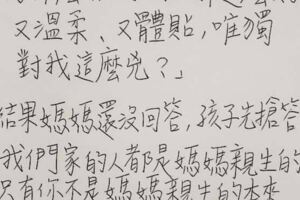 又溫柔、又體貼，唯獨
對我這麼兇？」
結果媽媽還沒回答，孩子先搶答
我們家的人都是媽媽親生的
只有你不是媽媽親生的本來